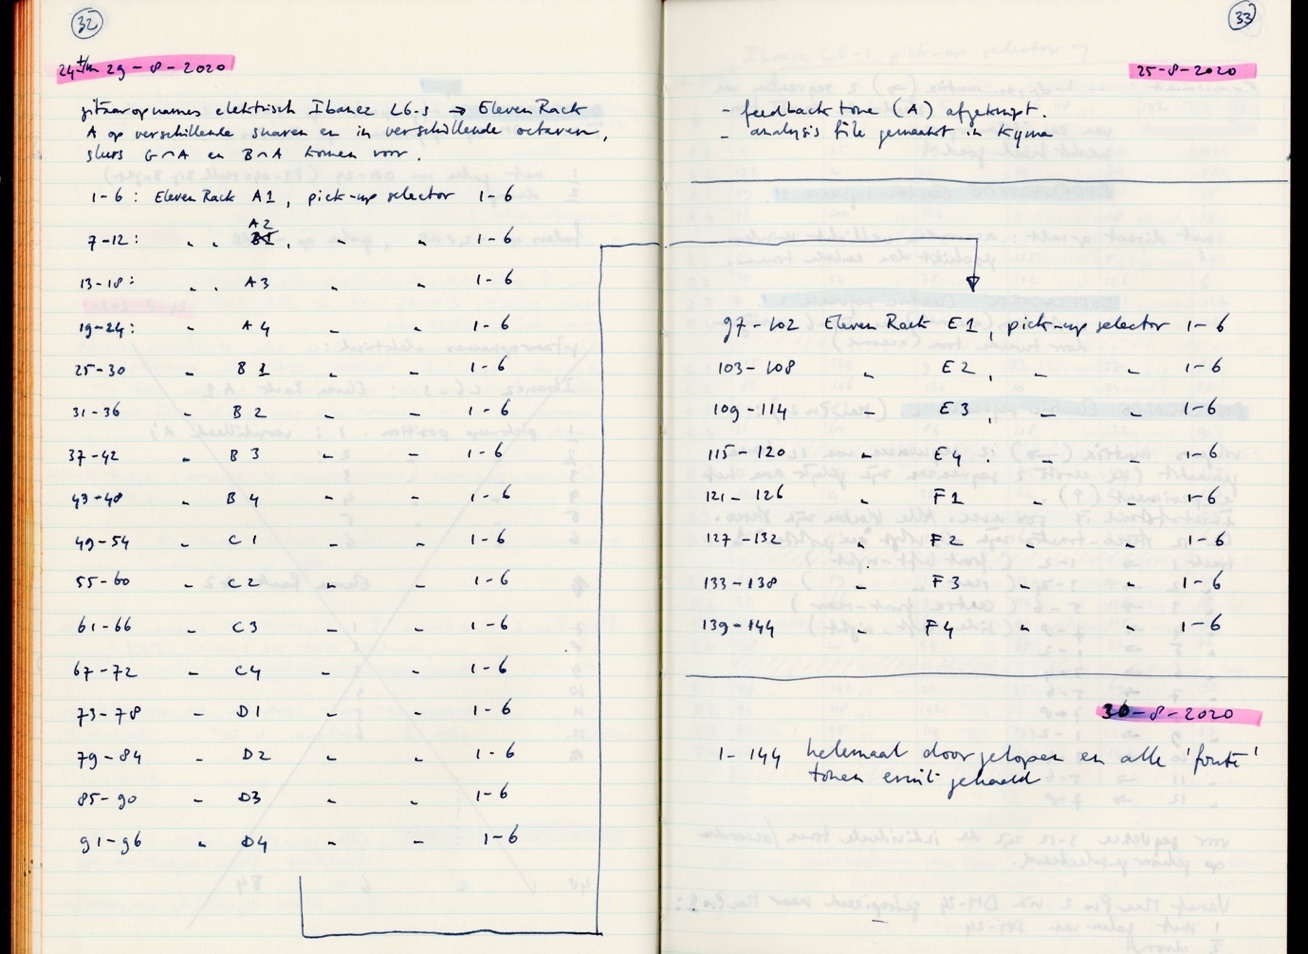 32
24 t/m 29-8-2020
gitaaropnames elektrisch Ibanez LG-S → Eleven Rack
A op verschillende snaren en in verschillende octaven,
slurs G∩A en B∩A komen voor.
1-6 : Eleven Rack A1, pick-up selector 1-6
A2
7-12 : " " B1, " " 1-6
13-18 : " " A3 " " 1-6
19-24 : " A4 " " 1-6
25-30 " B1 " " 1-6
31-36 " B2 " " 1-6
37-42 " B3 " " 1-6
43-48 " B4 " " 1-6
49-54 " C1 " " 1-6
55-60 " C2 " " 1-6
61-66 " C3 " " 1-6
67-72 " C4 " " 1-6
73-78 " D1 " " 1-6
79-84 " D2 " " 1-6
85-90 " D3 " " 1-6
91-96 " D4 " " 1-6
33
25-8-2020
- feedback tone (A) afgeknipt.
- analysis file gemaakt in Kyma
97-102 Eleven Rack E1, pick-up selector 1-6
103-108 " E2, " " 1-6
109-114 " E3, " " 1-6
115-120 " E4, " " 1-6
121-126 " F1 " " 1-6
127-132 " F2 " " 1-6
133-138 " F3 " " 1-6
139-144 " F4 " " 1-6
30-8-2020
1-144 helemaal doorgelopen en alle 'foute'
tonen eruit gehaald